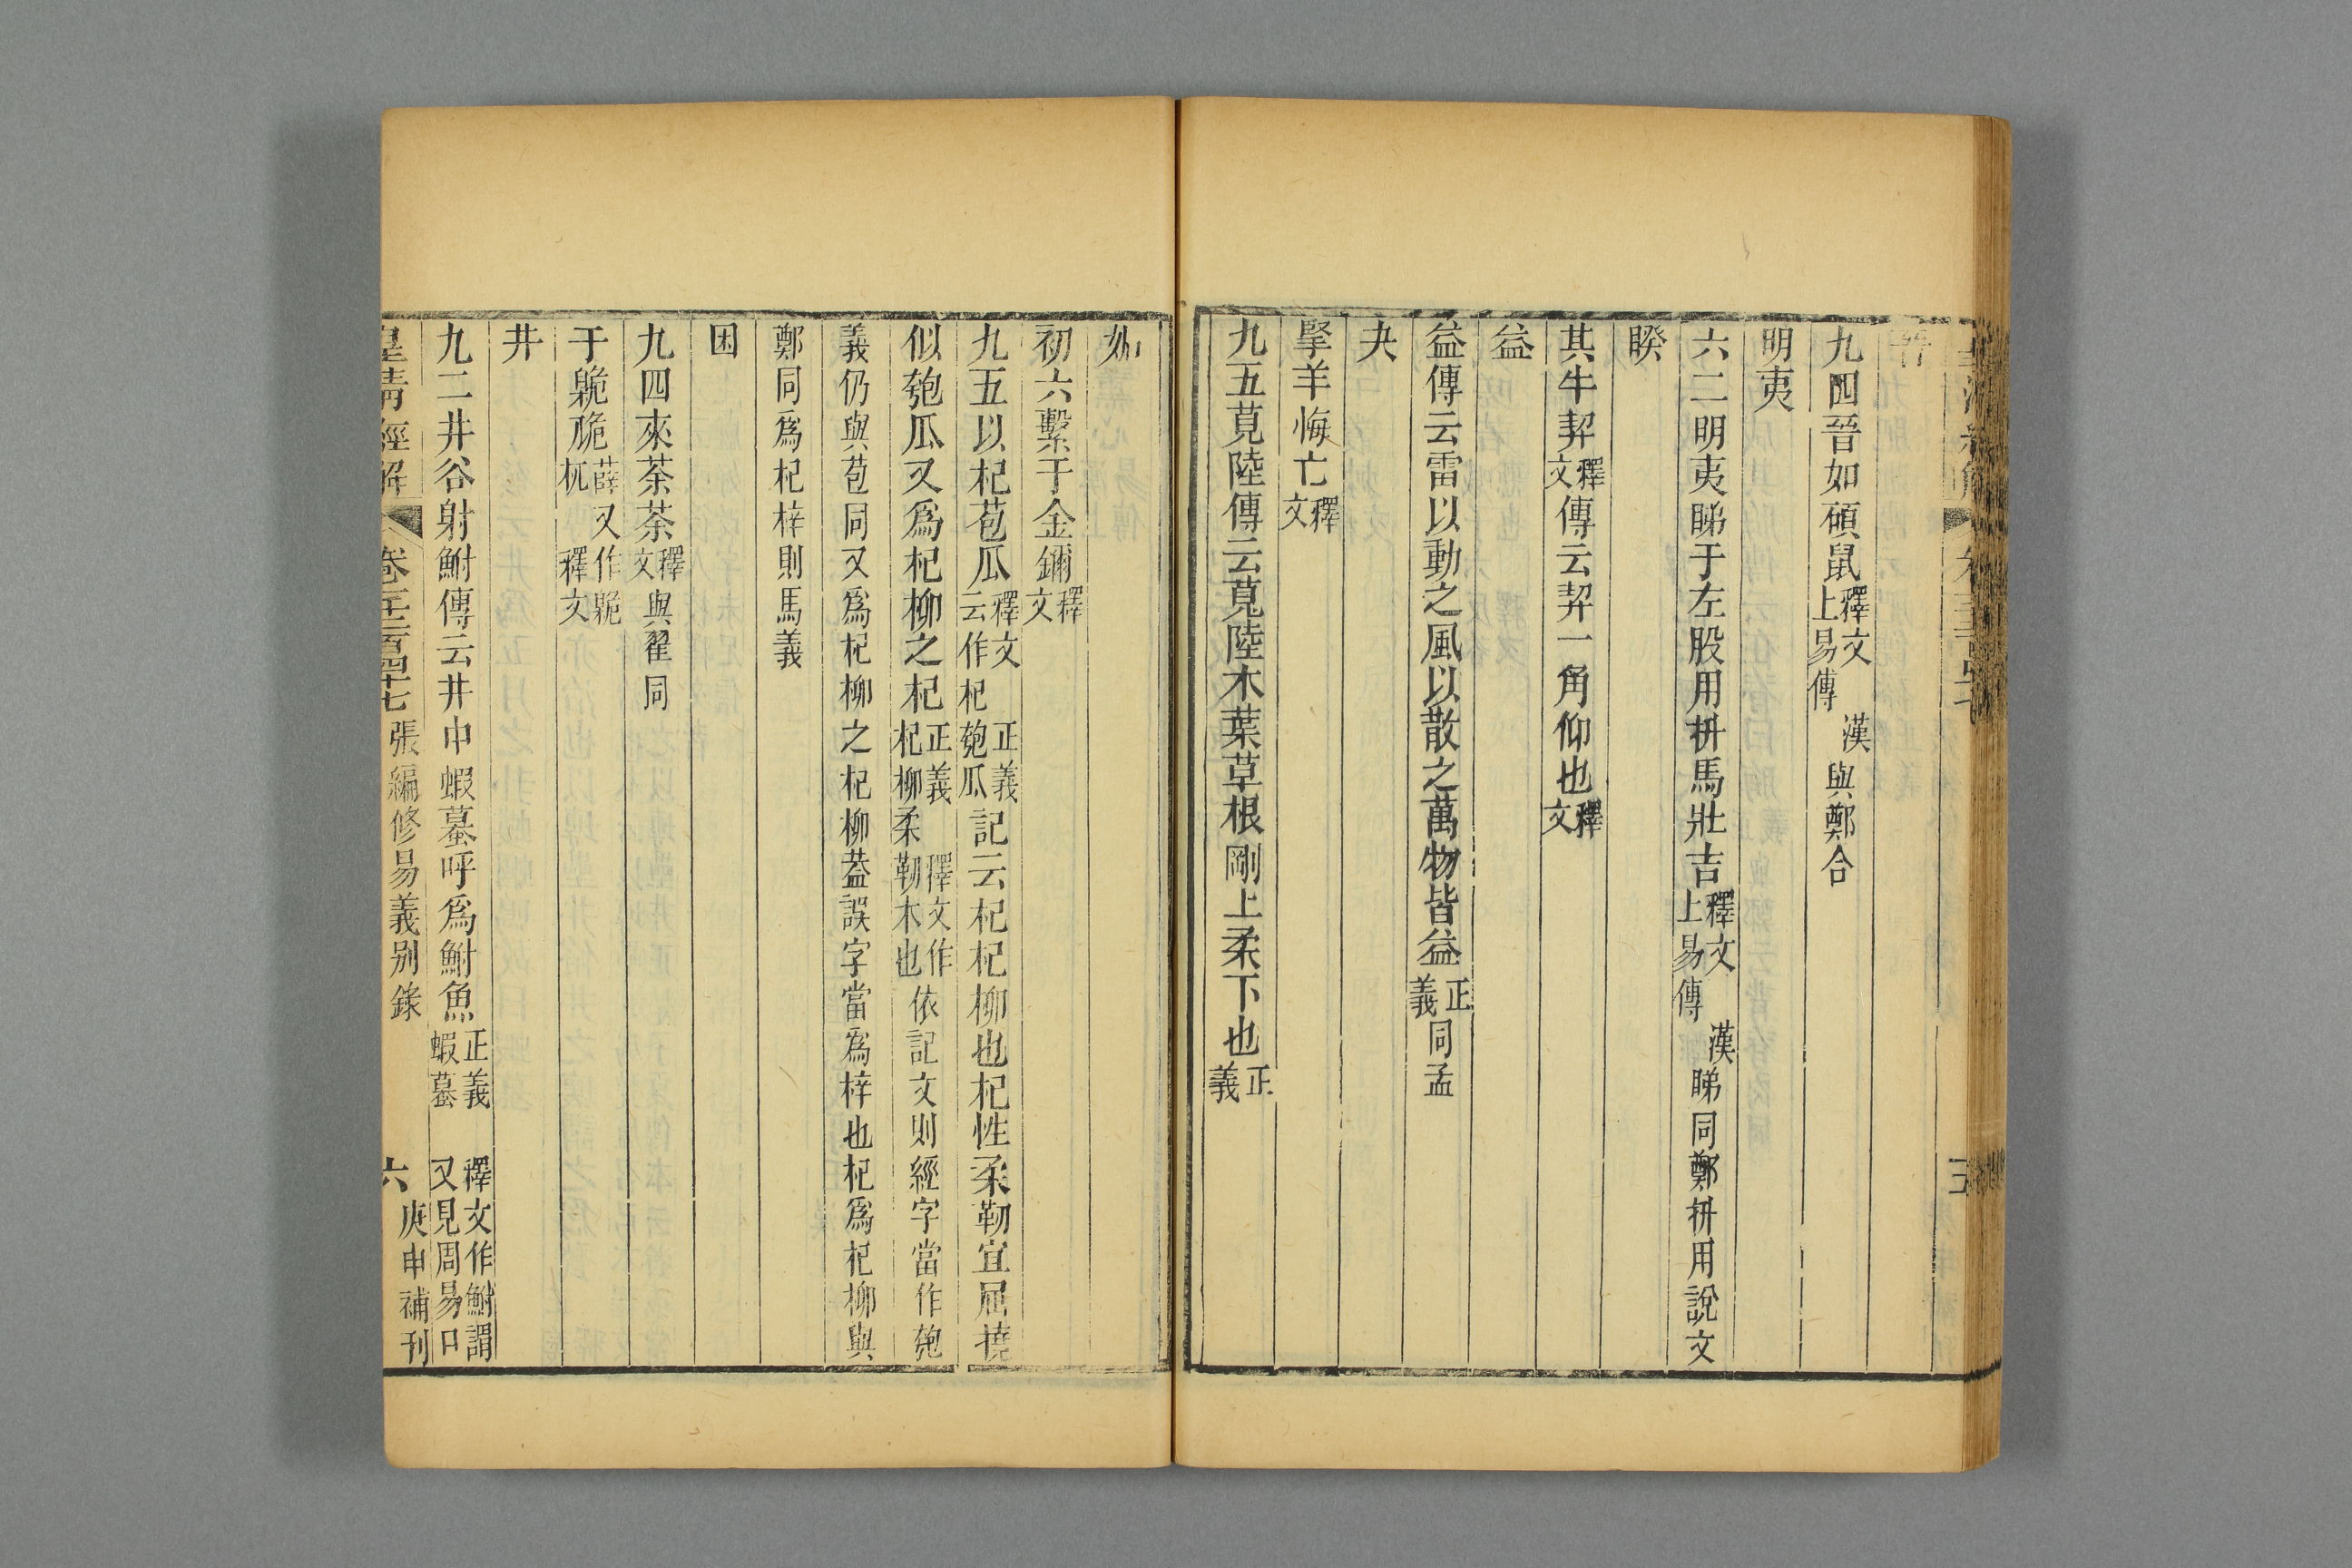 晉
九四晉如碩鼠釋文漢上易傳與鄭合
明夷
六二明夷睇于左股用抍馬壯吉釋文漢上易傳睇同鄭抍用說文
睽
其牛挈釋文傳云挈一角仰也釋文
益
益傳云雷以動之風以散之萬物皆益正義同孟
夬
掔羊悔亡釋文
九五莧陸傳云莧陸木葉草根剛上柔下也正義
姤
初六繫于金鑈釋文
九五以杞苞瓜釋文云作杞正義匏瓜記云杞杞柳也杞性柔韌宜屈撓
似匏瓜又爲杞柳之杞正義杞柳柔釋文作韌木也依記文則經字當作匏
義仍與苞同又爲杞柳之杞柳葢誤字當爲梓也杞爲杞柳與
鄭同爲杞梓則馬義
困
九四來荼荼釋文與翟同
于臲卼薛又作臲杌釋文
井
九二井谷射鮒傳云井中蝦蟇呼爲鮒魚正義蝦蟇釋文作鮒謂又見周易口
皇清經解 卷一千二百四十七 張編修易義别錄 六 庚申補刊